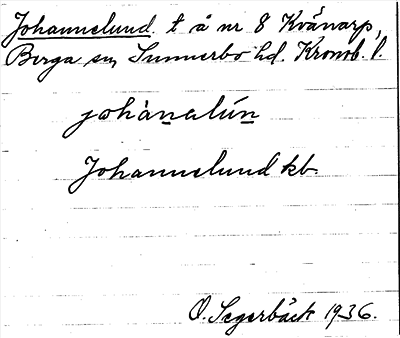 Johannelund t å nr 8 Kvänarp,
Berga sn, Sunnerbo hd. Kronob. l.
johànalún
Johannelund kb.
O. Segerbäck 1936.